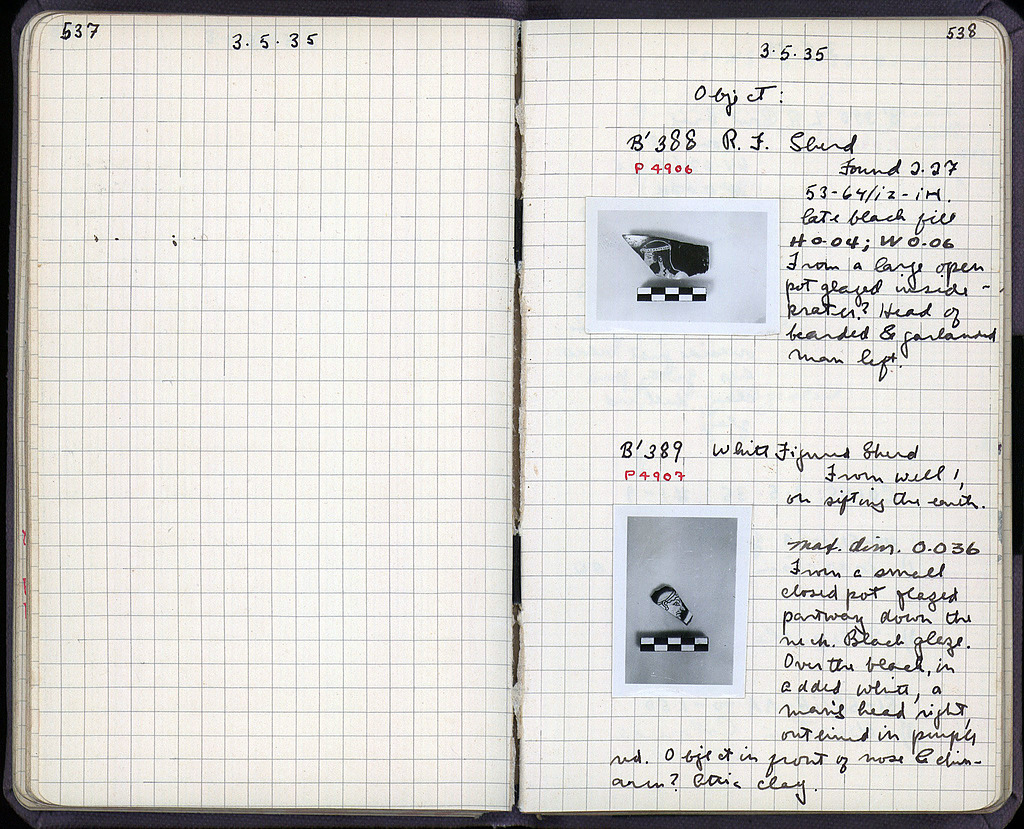 537
3.5.35
538
3.5.35
Object:
B'388 R. F. Sherd
P 4906
Found 2.27
53-64/ιζ-ιΗ.
late black fill
H 0.04; W 0.06
From a large open
pot glazed inside -
krater? Head of
bearded & garlanded
man left.
B'389 White Figured Sherd
P 4907
From well 1,
on sifting the earth.
max. dim. 0.036
From a small
closed pot glazed
partway down the
neck. Black glaze.
Over the black, in
added white, a
man's head right,
outlined in purple
red. Object in front of nose & chin-
arm? Attic clay.